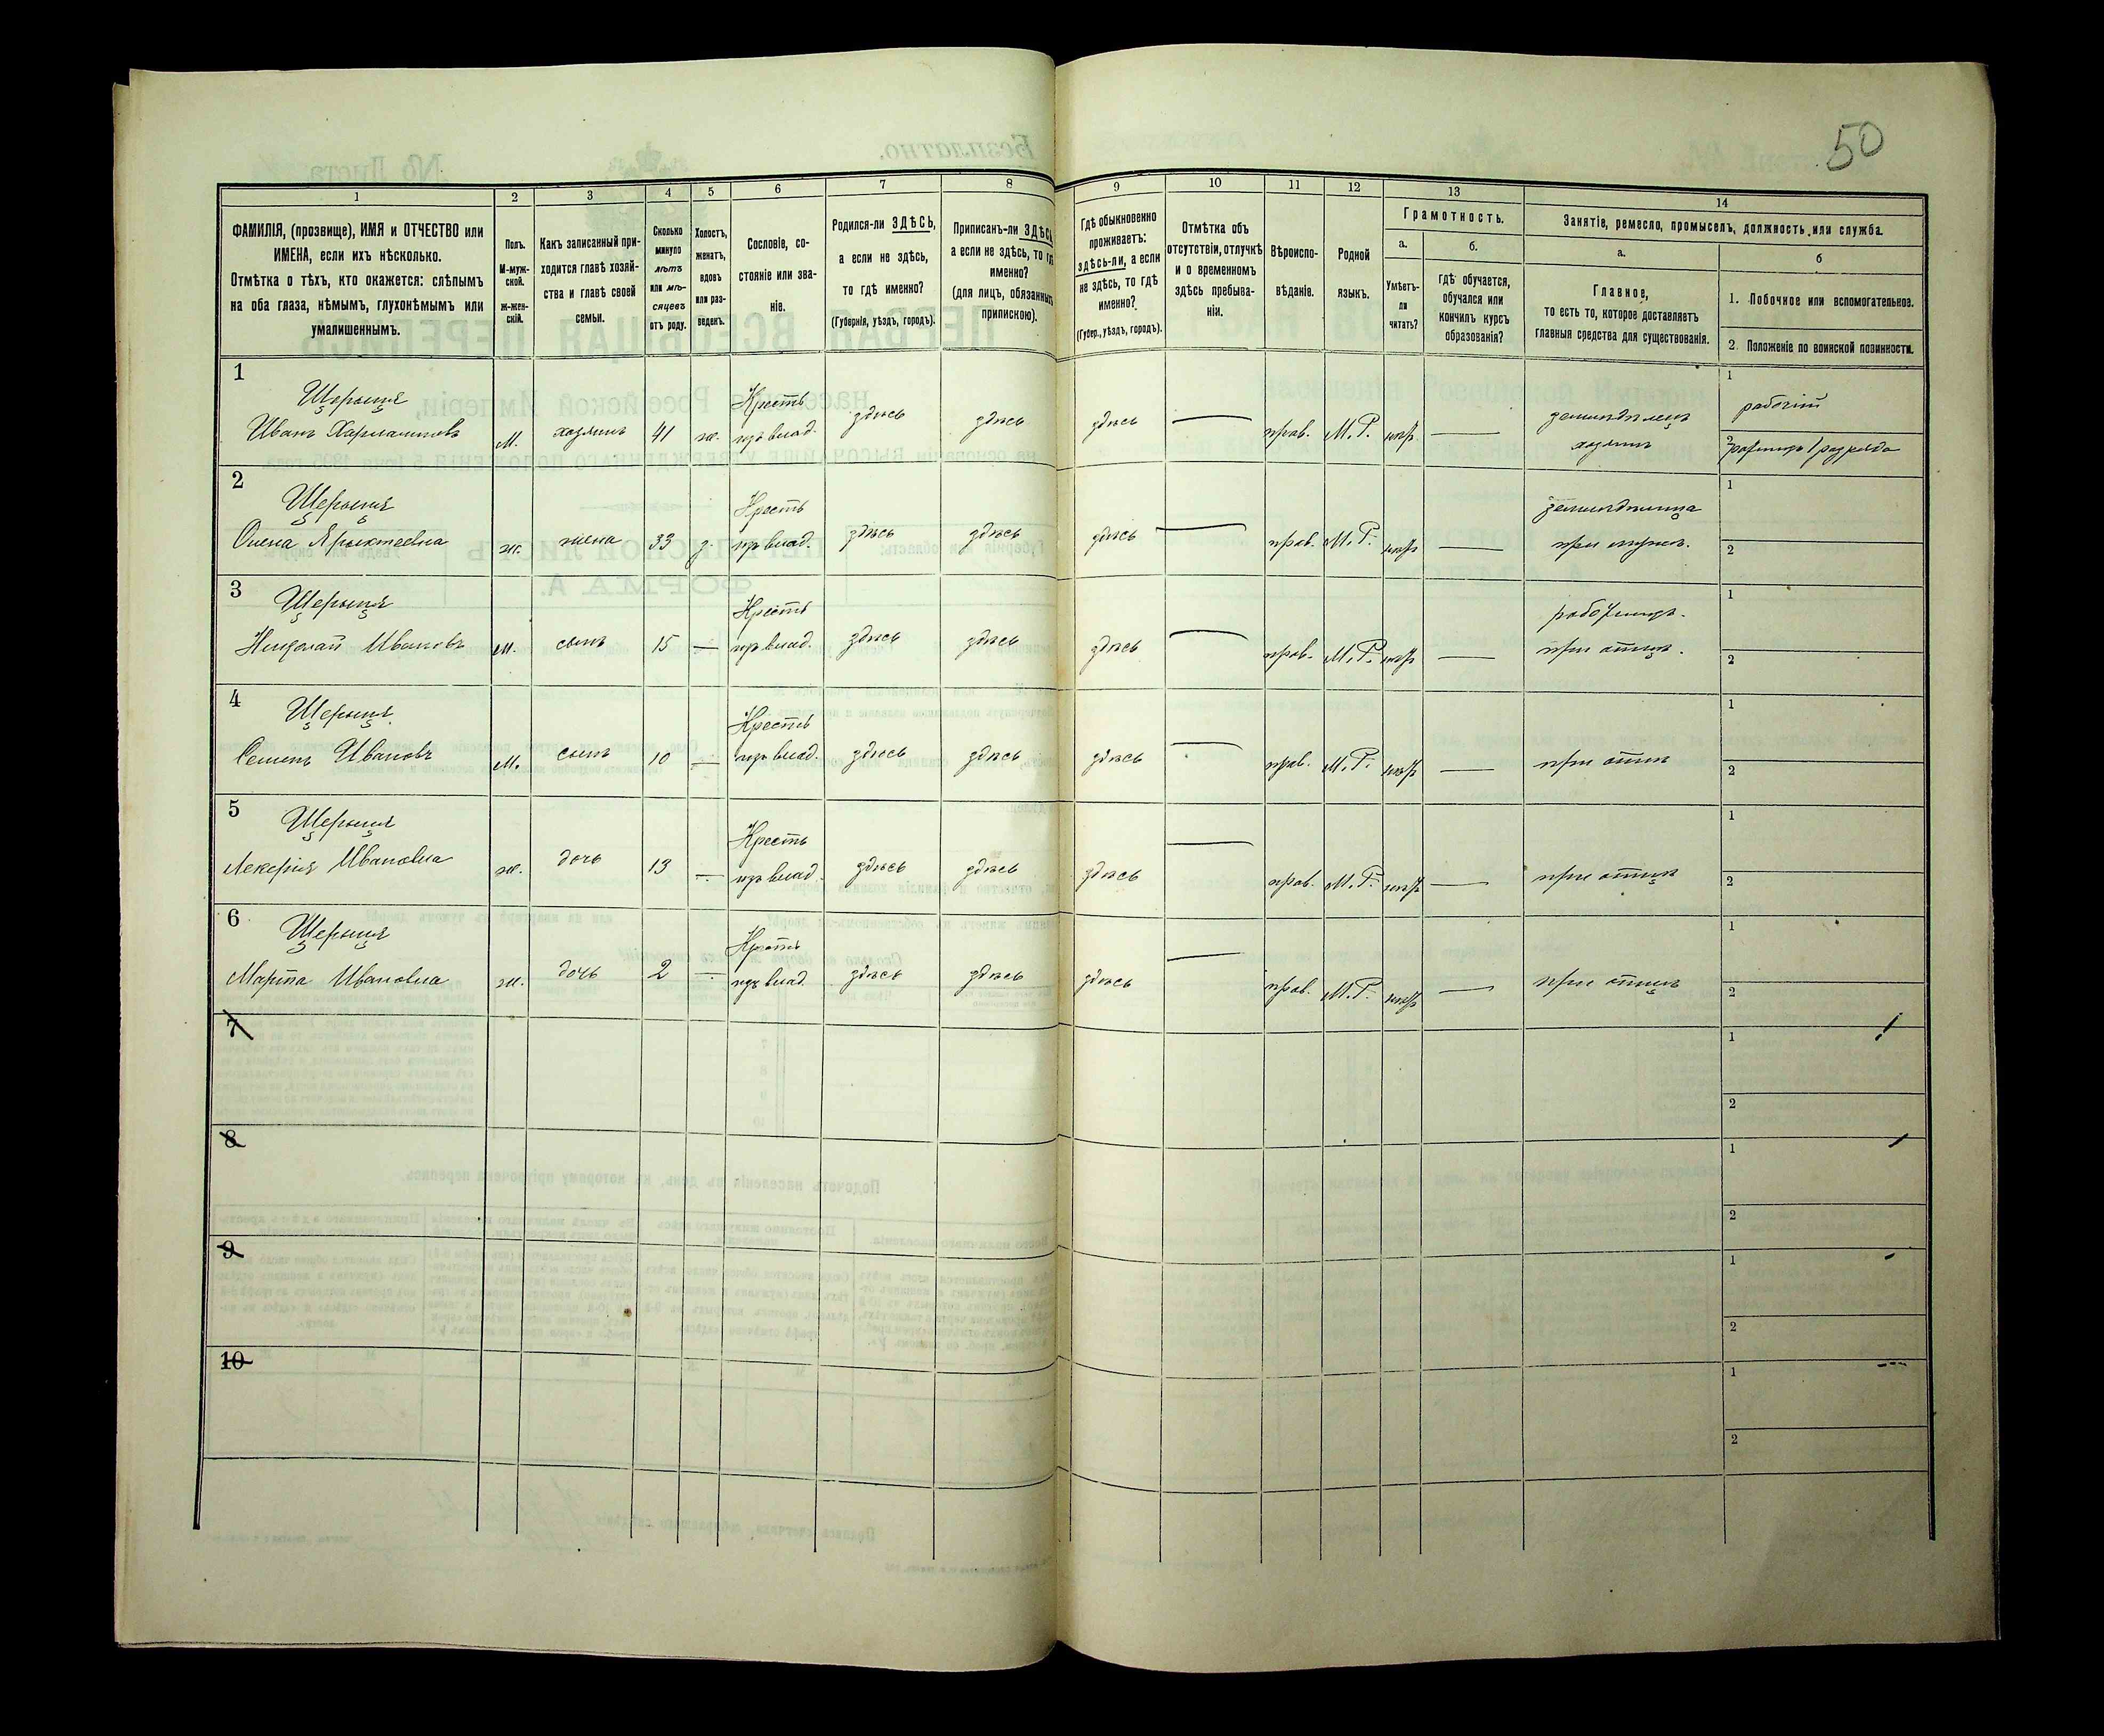 50
1
2
3
4
5
6
7
8
9
10
11
12
13
14
ФАМИЛІЯ, (прозвище), ИМЯ и ОТЧЕСТВО или
ИМЕНА, если ихъ нѣсколько.
Отмѣтка о тѣхъ, кто окажется: слѣпымъ
на оба глаза, нѣмымъ, глухонѣмымъ или
умалишеннымъ.
Полъ.
М-муж-
ской.
ж-жен-
скій.
Какъ записанный при-
ходится главѣ хозяй-
ства и главѣ своей
семьи.
Сколько
минуло
лѣтъ
или мѣ-
сяцевъ
отъ роду.
Холостъ,
женатъ,
вдовъ
или раз-
веденъ.
Сословіе, со-
стояніе или зва-
ніе.
Родился-ли ЗДѢСЬ,
а если не здѣсь,
то гдѣ именно?
(Губернія, уѣздъ, городъ).
Приписанъ-ли ЗДѢСЬ
а если не здѣсь, то гдѣ
именно?
(для лицъ, обязанныхъ
припискою).
Гдѣ обыкновенно
проживаетъ:
здѣсь-ли, а если
не здѣсь, то гдѣ
именно?
(Губер., уѣздъ, городъ).
Отмѣтка объ
отсутствіи, отлучкѣ
и о временномъ
здѣсь пребыва-
ніи.
Вѣроиспо-
вѣданіе.
Родной
языкъ.
Грамотность.
а.
Умѣетъ-
ли
читать?
б.
гдѣ обучается,
обучался или
кончилъ курсъ
образованія?
Занятіе, ремесло, промыселъ, должность или служба.
а.
Главное,
то есть то, которое доставляетъ
главныя средства для существованія.
б
1. Побочное или вспомогательное.
2. Положеніе по воинской повинности.
1
Иванъ
м. хозяинъ 41 ж.
Крестъ
изъ влад.
здѣсь здѣсь здѣсь — прав. М.Р. —
хозяинъ
1
рабочій
2 ратникъ 1 разряда
2
ж. жена 33 з.
Крестъ
изъ влад.
здѣсь здѣсь здѣсь — прав. М.Р. —
при мужѣ.
1
2
3
Ивановъ
м. сынъ 15 —
Крестъ
изъ влад.
здѣсь здѣсь здѣсь — прав. М.Р. —
при отцѣ.
1
2
4
Семенъ Ивановъ
м. сынъ 10 —
Крестъ
изъ влад.
здѣсь здѣсь здѣсь — прав. М.Р. —
при отцѣ
1
2
5
Ивановна
ж. дочь 13 —
Крестъ
изъ влад.
здѣсь здѣсь здѣсь — прав. М.Р. —
при отцѣ
1
2
6
Марта Ивановна
ж. дочь 2 —
Крестъ
изъ влад.
здѣсь здѣсь здѣсь — прав. М.Р. —
при отцѣ
1
2
7
1
2
8
1
2
9
1
2
10
1
2